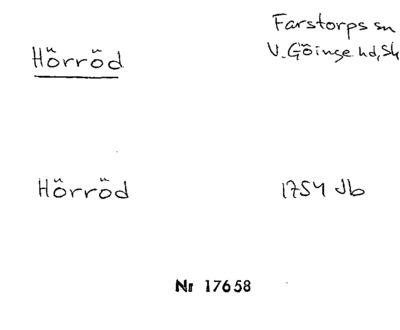 Hörröd
Farstorps sn
V. Göinge hd, Sk
Hörröd
1754 Jb
Nr 17658